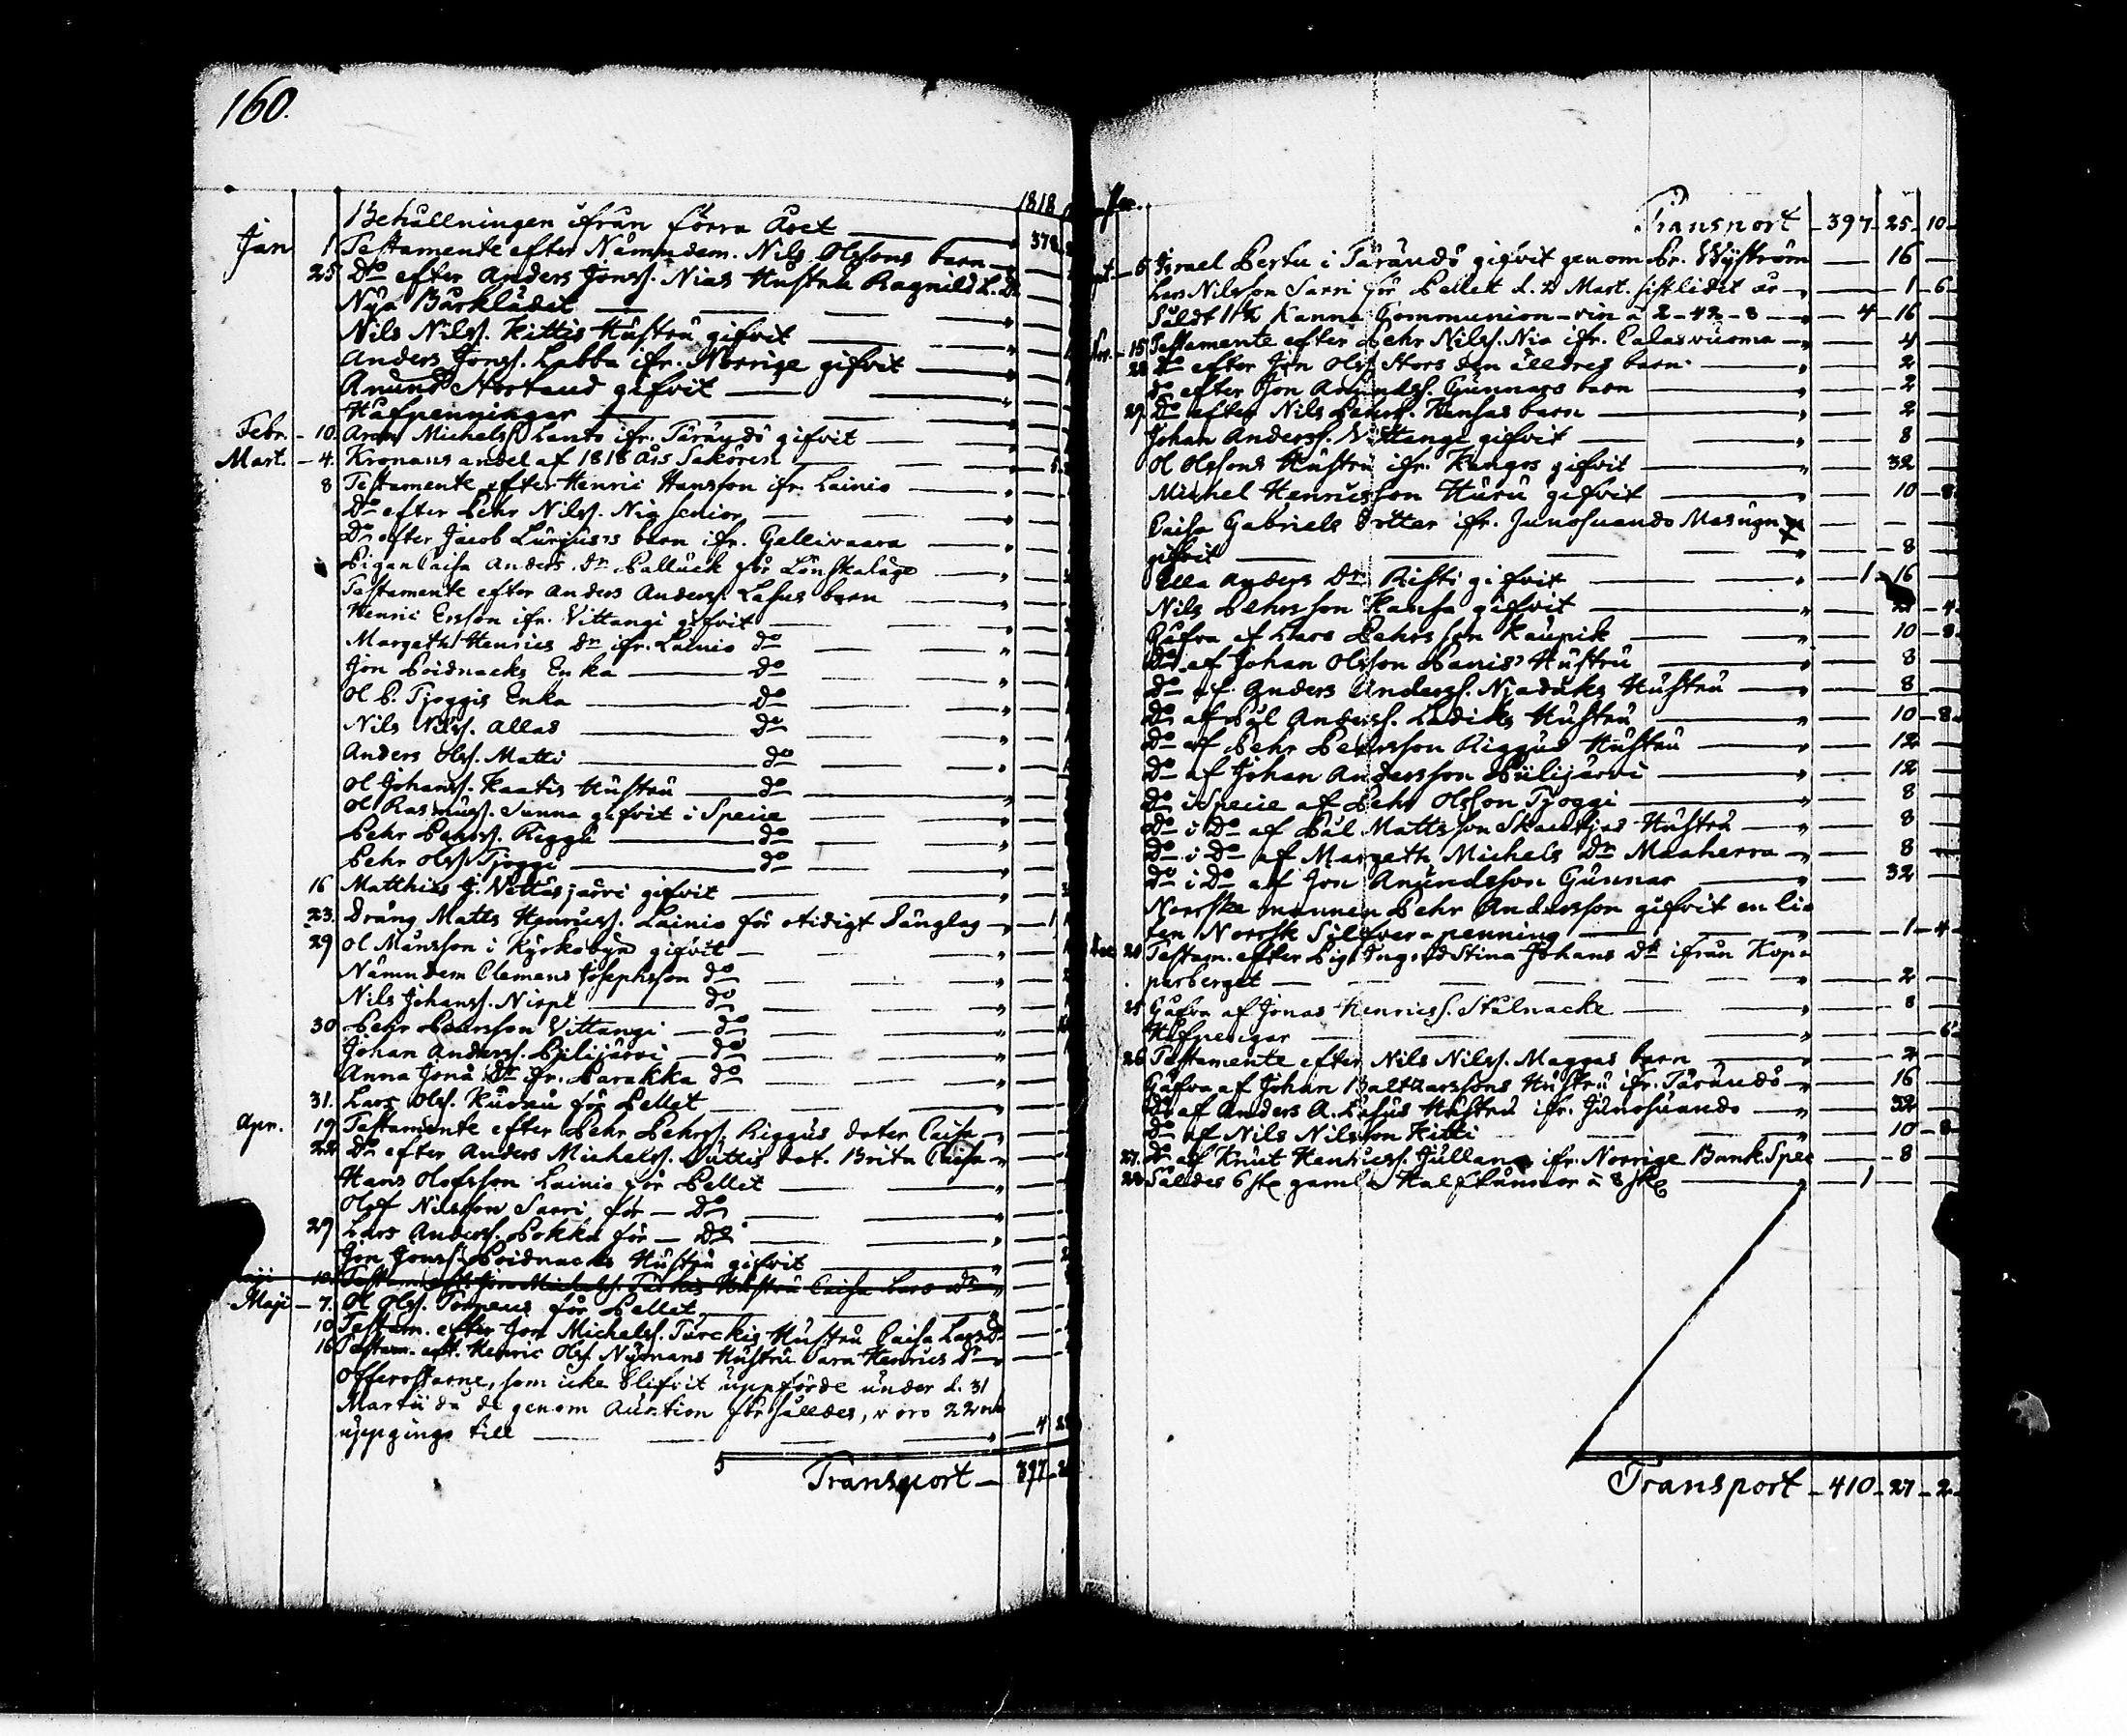 160.
1818
Behållningen ifrån förra Året 378
Jan 1 Testamente efter Nämndem. Nils Olssons barn
25 Do efter Anders Jonss. Nias Hustru Ragnild L. Dr
Nya Bårklädet
Nils Nilss. Kittis Hustru gifvit
Anders Jonss. Labba ifr. Norrige gifvit
Anund gifvit
Håfpenningar
Febr. - 10. Aron Michelss. Lanto ifr. Tärändö gifvit
Mart. - 4. Kronans andel af 1818 Års Sakören
8 Testamente efter Henric Hansson ifr. Lainio
Do efter Pehr Nilss. Nia senior
Do efter Jacob barn ifr. Gellivaara
Pigan Caisa Anders Dr Palluck för Lönskaläge
Testamente efter Anders Anderss. Lasus barn
Henric Ersson ifr. Vittangi gifvit
Margeth Henrics Dr ifr. Lainio do
Jon Poidnacks Enka do
Ol P. Tjoggis Enka do
Nils Nilss. Allas do
Anders Olss. Matti do
Ol Johanss. Kaatis Hustru do
Ol Rasmuss. Sunna gifvit i Specie
Pehr Pehrss. Riggu do
Pehr Olss. Tjoggi do
16 Matthias J. Vettasjärvi gifvit
23. Dräng Matts Henricss. Lainio för otidigt Sänglag 1
29 Ol Månsson i Kyrkobyn gifvit
Nämndem Clemens Josephsson do
Nils Johanss. Niopt do
30 Pehr Pehrsson Vittangi do
Johan Anderss. Pilijärvi do
Anna Jona Dr ifr. Parakka do
31. Lars Olss. Kurru för Pellet
Apr. 19 Testamente efter Pehr Pehrss. Riggus doter Caisa
22 Do efter Anders Michelss. dot. Brita Caisa
Hans Olofsson Lainio för Pellet
Olof Nilsson Sarri för Do
29 Lars Anderss. Pokka för Do
Jon Jonss. Poidnacks Hustru gifvit
10. Testam. eft. Jon Michelss. Turkis Hustru Caisa Lars Dr
Maji - 7. Ol Olss. Torneus för Pellet
10 Testam. efter Jon Michelss. Turckis Hustru Caisa Lars Dr
16 Testam. eft. Henric Olss. Nymans Hustru Sara Henrics Dr
Offerostarne, som icke blifvit uppförde under d. 31
Martii då de genom Auction försålldes, voro 22
uppgingo till 4
Transport - 397
Transport - 397 - 25 - 10
6 Israel Pertu i Tärändö gifvit genom Br. Wyström 16
Lars Nilsson Sarri för Pellet d. Mart. sistlidit år 1 - 6
Såldt 1½ Kanna Communion-vin à 2-42-8 4 - 16
15 Testamente efter Pehr Nilss. Nia ifr. Palasvuoma 4
22 Do efter Jon Olss. Stors den älldres barn 2
do efter Jon Anundss. Gunnars barn 2
29. Do efter Nils Pehrss. Kensas barn 2
Johan Anderss. Vittangi gifvit 8
Ol Olssons Hustru ifr. Kangos gifvit 32
Michel Henricsson Huru gifvit 10 - 8
Caisa Gabriels Dotter ifr. Junosuando Masugn
gifvit 8
Ella Anders Dr Risti gifvit 1 16
Nils Pehrsson Kansa gifvit 4
Gåfva af Lars Pehrsson Kaupik 10 - 8
Do af Johan Olsson Panis' Hustru 8
Do af Anders Anderss. Njaduks Hustru 8
Do af Pål Anderss. Ladiks Hustru 10 - 8
Do af Pehr Pehrsson Riggus Hustru 12
Do af Johan Andersson Piilijärvi 12
Do i Specie af Pehr Olsson Tjoggi 8
Do i Do af Pål Mattsson Hustru 8
Do i Do af Margeth Michels Dr Maaherra 8
Do i Do af Jon Anundsson Gunnar 32
Norrske mannen Pehr Andersson gifvit en li
ten Norrsk Silfverpenning 1 - 4
Dec 20 Testam. efter Pig. Stina Johans Dr ifrån Kop
parberget 2
25 Gåfva af Jonas Henricss. Stålnacke 8
Håfpengar 6
26 Testamente efter Nils Nilss. Maggas barn 2
Gåfva af Johan Balthzarssons Hustru ifr. Tärändö 16
Do af Anders A. Lasus Hustru ifr. Junosuando 32
Do af Nils Nilsson Kitti 10 - 8
27. Do af Knut Henricss. ifr. Norrige Bank. Spec 8
28 Såldes 6 st. gamla Half kannor à 8 sk 1
Transport - 410 - 27 - 2